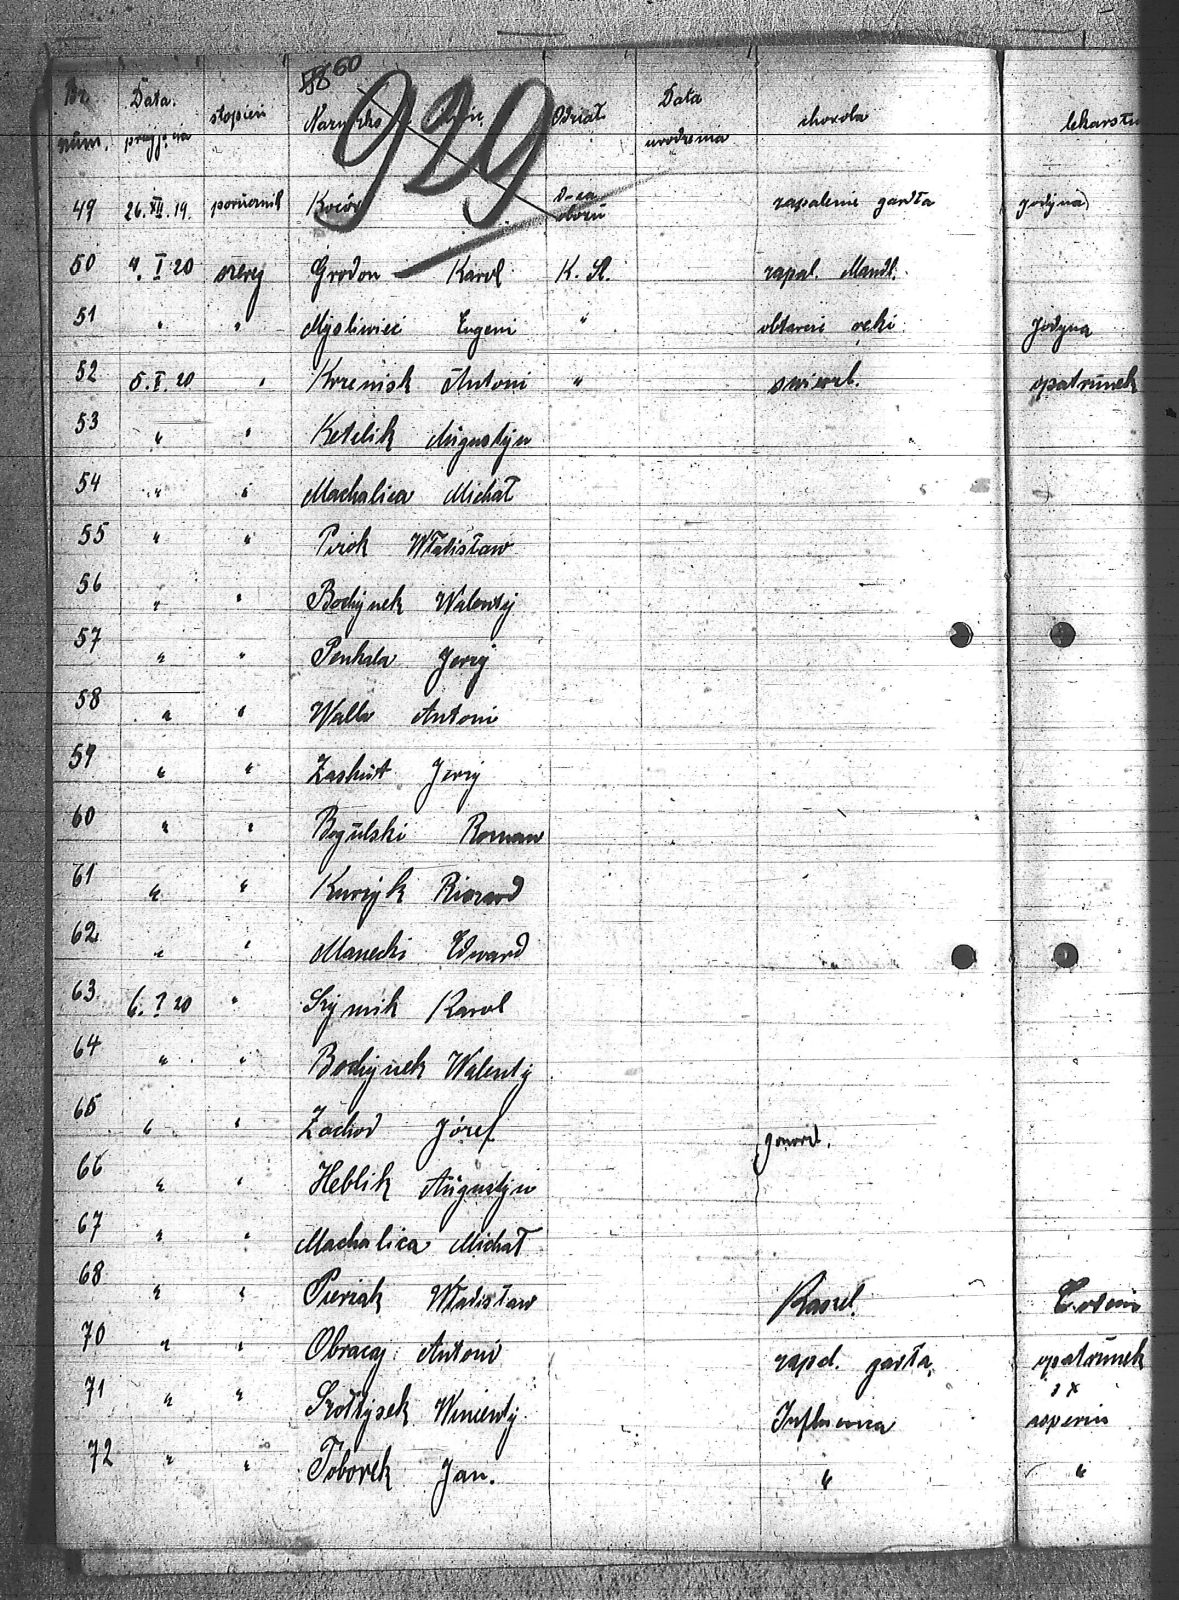 58 60
929
Nr. Data stopień Nazwisko Imię Oddział Data choroba lekarstw
num. przyjęcia urodzenia
49 26.XII.19. porucznik D-ca obozu zapalenie gardła jodyna
50 4. I 20 szereg Grodon Karol K. Sł. zapal. Mandl.
51 " " Mysliwieć Eugeni " obtarcie ręki jodyna
52 5. I 20 " Krzemisk Antoni " świerzb. opatrunek
53 " " Ketelik Augustyn
54 " " Machalica Michał
55 " " Pirok Władisław
56 " " Bochynek Walenty
57 " " Penkala Jerzy
58 " " Walla Antoni
59 " " Zaskut Jerzy
60 " " Bogulski Roman
61 " " Kurzyk Riszard
62 " " Manecki Edward
63 6. I 20 " Szymik Karol
64 " " Bochynek Walenty
65 " " Zachod Józef gonorrh.
66 " " Heblik Augustyn
67 " " Machalica Michał
68 " " Pieriak Władisław Kaszel.
70 " " Obracaj Antoni zapal. gardła, opatrunek
71 " " Szołtysek Wincenty Influenca
72 " " Toborek Jan. " "